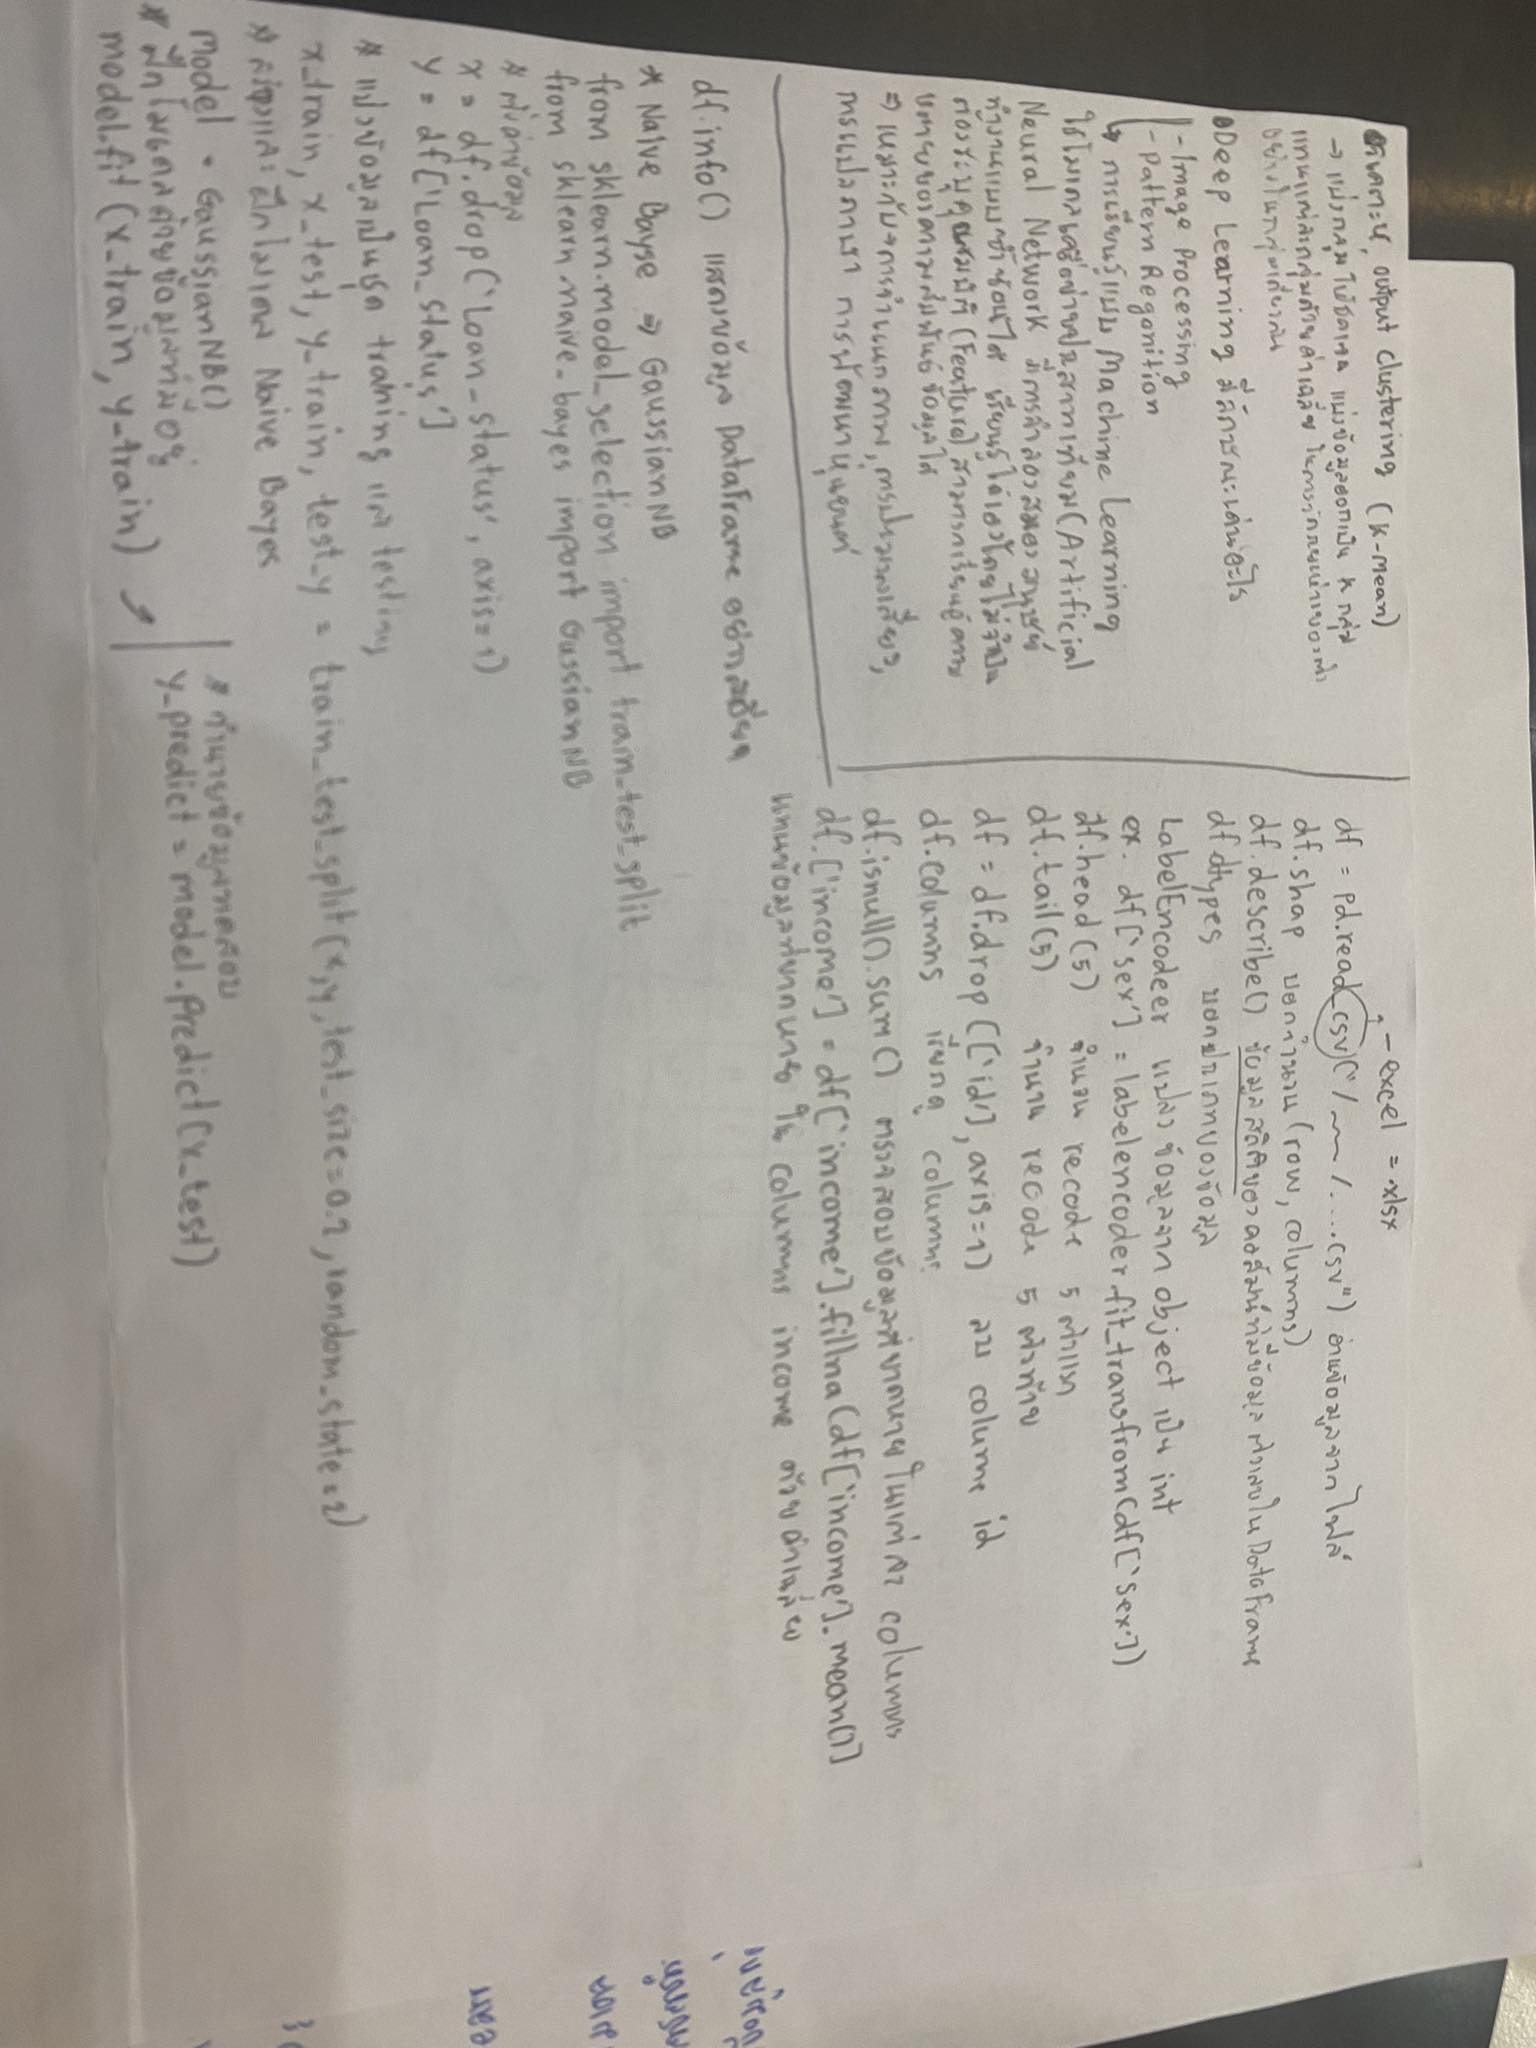 วิเคราะห์ output clustering (K-mean)
→ แบ่งกลุ่มให้ชัดเจน แบ่งข้อมูลออกเป็น K กลุ่ม
แทนแต่ละกลุ่มด้วยค่าเฉลี่ย ในการวัดระยะห่างของตัว
อย่างในกลุ่มเดียวกัน
Deep Learning มีลักษณะเด่นอะไร
- Image Processing
- Pattern Regonition
↳ การเรียนรู้แบบ Machine Learning
ใช้โมเดลเครือข่ายประสาทเทียม (Artificial
Neural Network มีการจำลองสมองมนุษย์
ทำงานแบบซ้ำซ้อนได้ เรียนรู้ได้เองโดยไม่จำเป็น
ต้องระบุคุณสมบัติ (Feature) สามารถเรียนรู้ความ
หมายของความสัมพันธ์ข้อมูลได้
⇒ เหมาะกับ→การจำแนกภาพ, การประมวลเสียง,
การแปลภาษา การพัฒนาหุ่นยนต์
- excel = .xlsx
df = pd.read_csv("/ /....csv") อ่านข้อมูลจากไฟล์
df.shap บอกจำนวน (row, columns)
df.describe() ข้อมูลสถิติของคอลัมน์ที่มีข้อมูลตัวเลขใน DataFrame
df.dtypes บอกประเภทของข้อมูล
LabelEncodeer แปลงข้อมูลจาก object เป็น int
ex. df['sex'] = labelencoder.fit_transfrom(df['sex'])
df.head(5) จำนวน recode 5 ตัวแรก
df.tail(5) จำนวน recode 5 ตัวท้าย
df = df.drop(['id'], axis=1) ลบ colume id
df.columns เรียกดู columns
df.isnull().sum() ตรวจสอบข้อมูลที่ขาดหายในแต่ละ columns
df.['income'] = df['income'].fillna(df['income'].mean())
แทนข้อมูลที่ขาดหาย ใน columns income ด้วยค่าเฉลี่ย
df.info() แสดงข้อมูล DataFrame อย่างละเอียด
* Naive Bayse ⇒ GaussianNB
from sklearn.model_selection import train_test_split
from sklearn.naive_bayes import GussianNB
# ตั้งค่าข้อมูล
x = df.drop('Loan_Status', axis=1)
y = df['Loan_Status']
# แบ่งข้อมูลเป็นชุด training และ testing
x_train, x_test, y_train, test_y = train_test_split(x,y,test_size=0.2,random_state=2)
# สร้างและฝึกโมเดล Naive Bayes
model = GaussianNB()
# ฝึกโมเดลด้วยข้อมูลที่มีอยู่
model.fit(x_train, y_train)
# ทำนายข้อมูลทดสอบ
y_predict = model.predict(x_test)